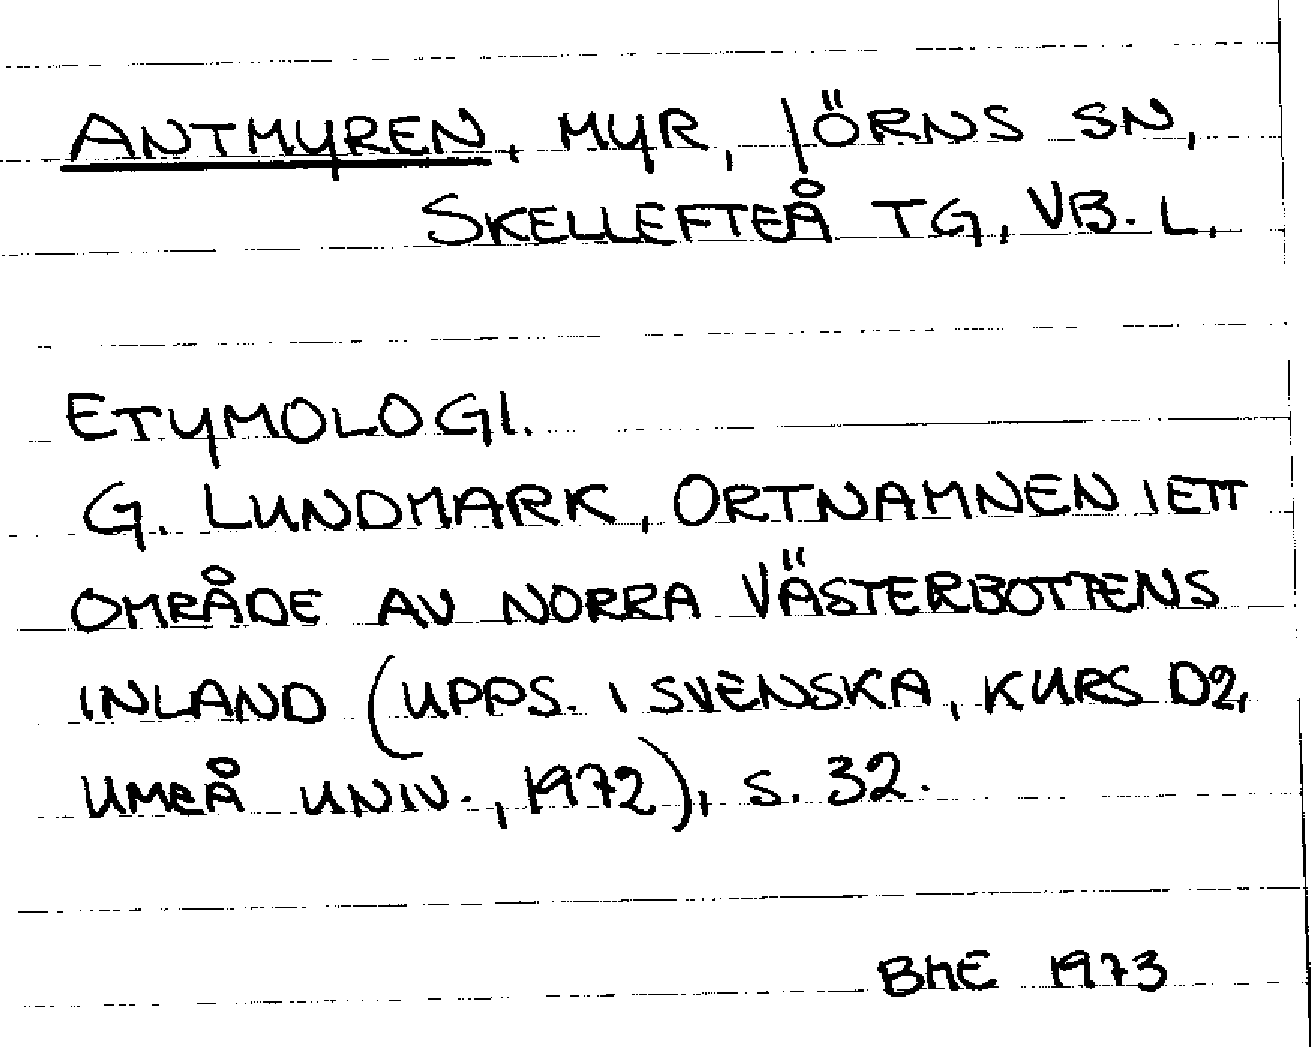 ANTMYREN, MYR, JÖRNS SN,
SKELLEFTEÅ TG, VB. L.
ETYMOLOGI.
G. LUNDMARK, ORTNAMNEN I ETT
OMRÅDE AV NORRA VÄSTERBOTTENS
INLAND (UPPS. I SVENSKA, KURS D2,
UMEÅ UNIV., 1972), S. 32.
BME 1973